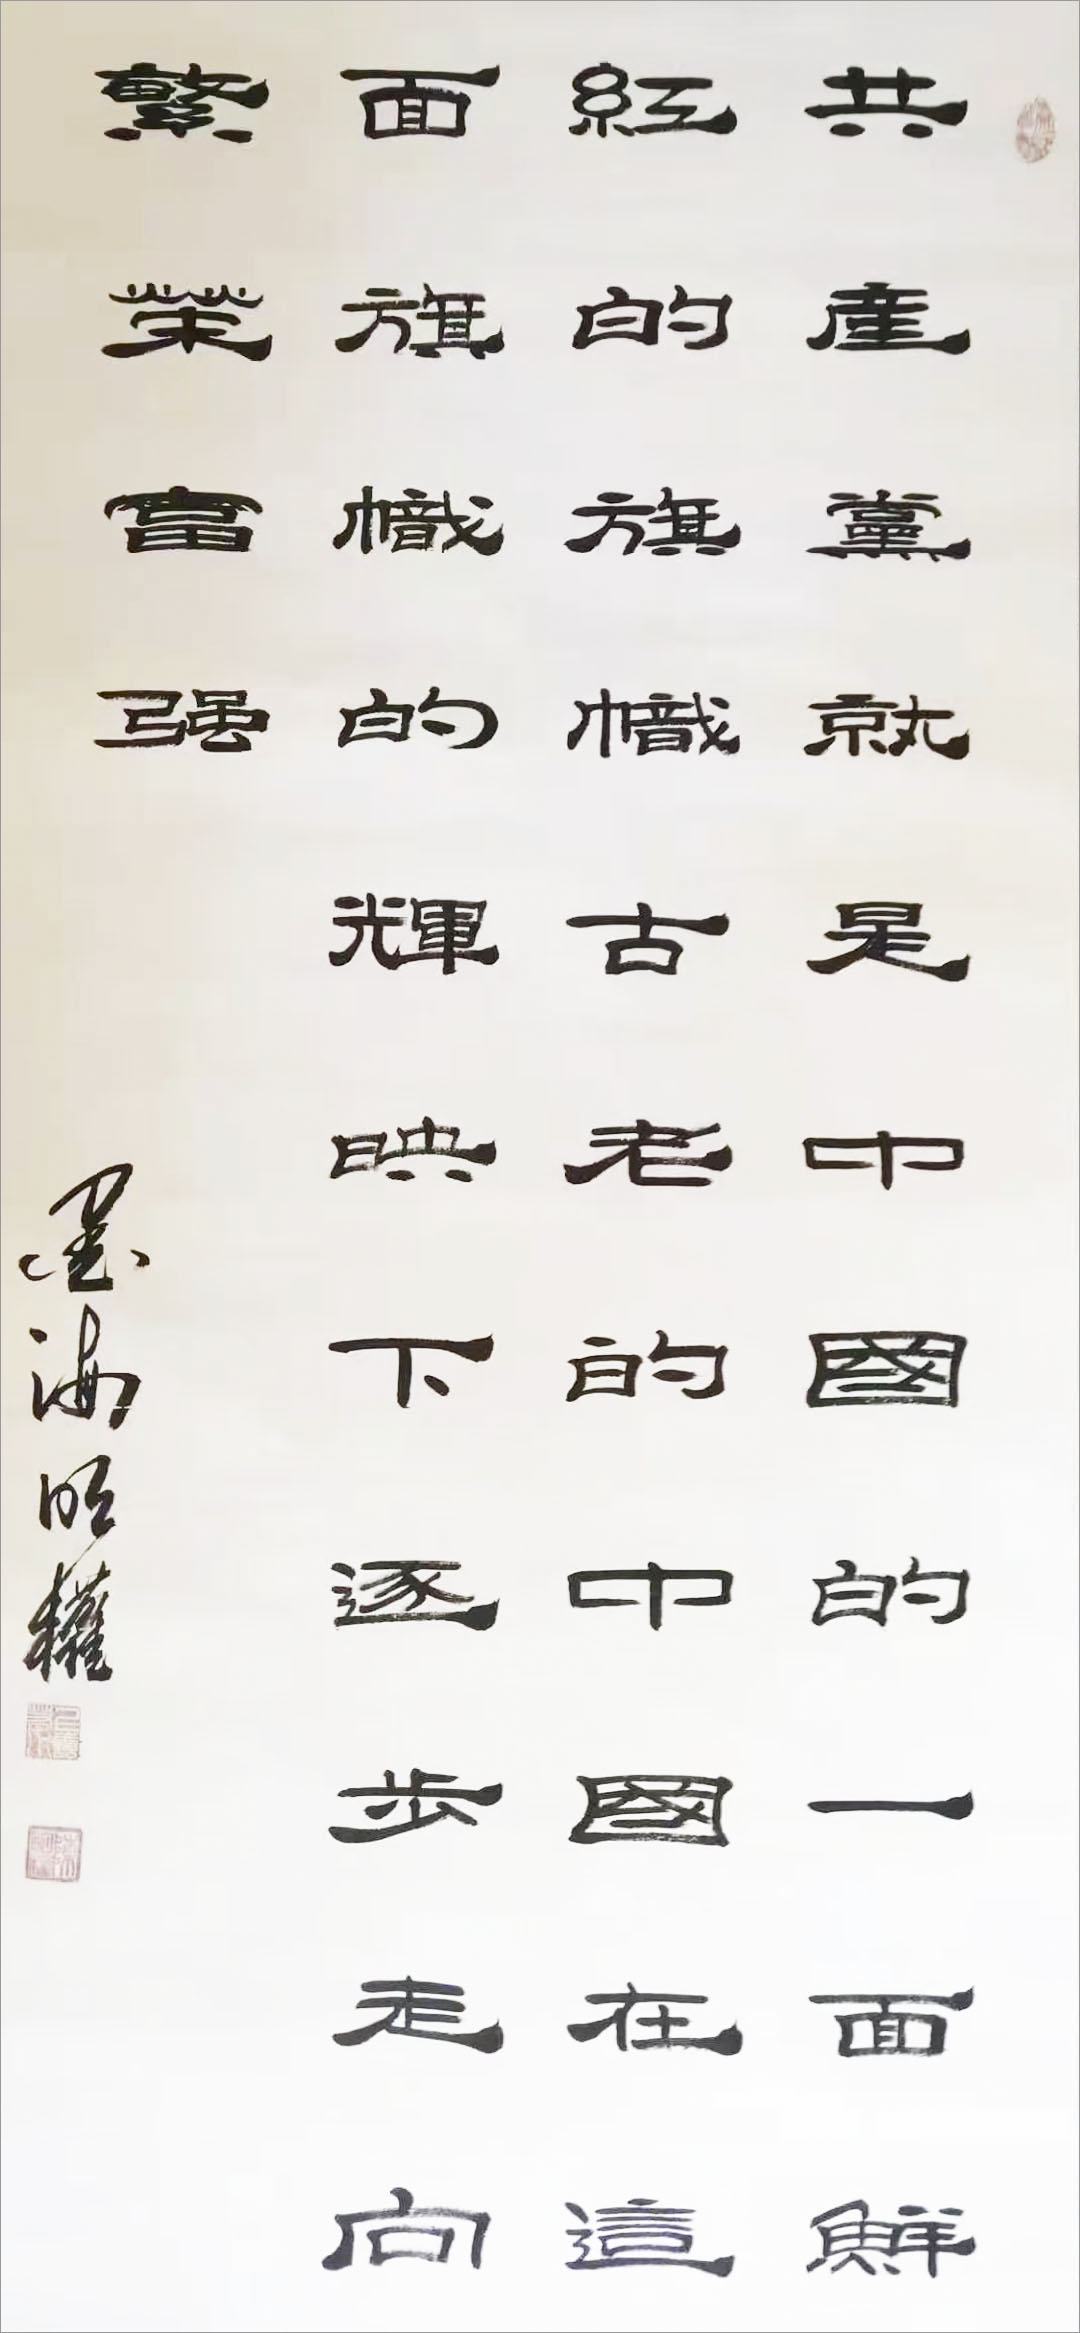 共産黨就是中國的一面鮮
紅的旗幟古老的中國在這
面旗幟的輝映下逐步走向
繁榮富强
墨海明權